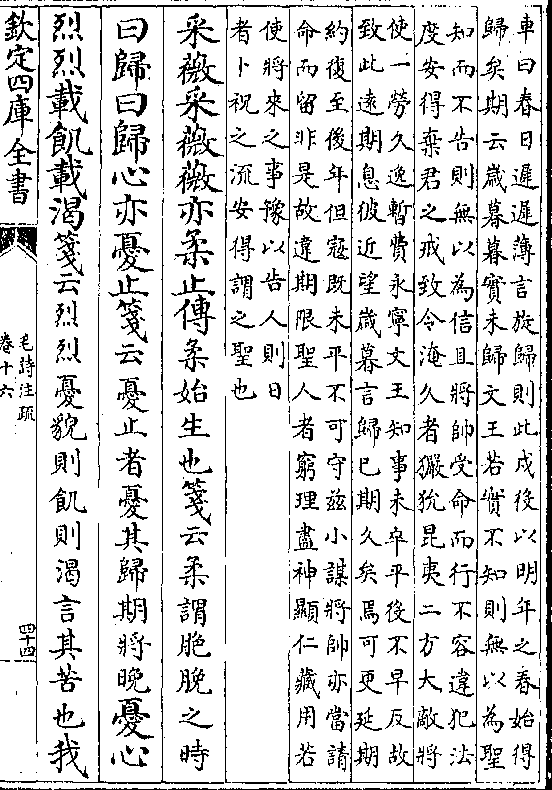 車曰春日遲遲薄言旋歸則此戍後以明年之春始得
歸矣期云歲暮暮實未歸文王若實不知則無以為聖
知而不告則無以為信且將帥受命而行不容違犯法
度安得棄君之戒致令淹久者玁狁昆夷二方大敵將
使一勞久逸暫費永寧文王知事未卒平後不早反故
致此遠期息彼近望歲暮言歸已期久矣焉可更延期
約復至後年但寇既未平不可守兹小謀將帥亦當請
命而留非是故違期限聖人者窮理盡神顯仁藏用若
使將來之事豫以告人則日
者卜祝之流安得謂之聖也
采薇采薇薇亦柔止傳柔始生也箋云柔謂脆脕之時
曰歸曰歸心亦憂止箋云憂止者憂其歸期將晚憂心
烈烈載飢載渴箋云烈烈憂貌則飢則渴言其苦也我
欽定四庫全書
毛詩注疏
卷十六
四十四